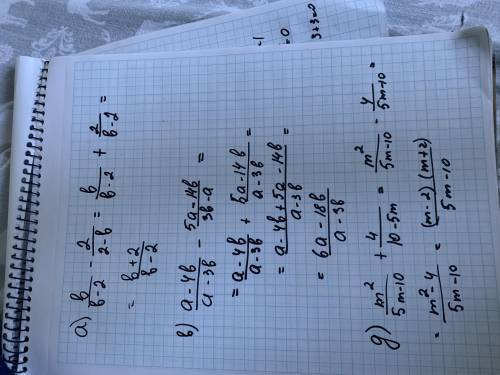 а) b/(b-2) - 2/(2-b) = b/(b-2) + 2/(b-2) =
= (b+2)/(b-2)
в) (a-4b)/(a-3b) - (5a-14b)/(3b-a) =
= (a-4b)/(a-3b) + (5a-14b)/(a-3b) =
= (a-4b+5a-14b)/(a-3b) =
= (6a-18b)/(a-3b)
д) m²/(5m-10) + 4/(10-5m) = m²/(5m-10) - 4/(5m-10) =
= (m²-4)/(5m-10) = (m-2)(m+2)/(5m-10)
3+3=0